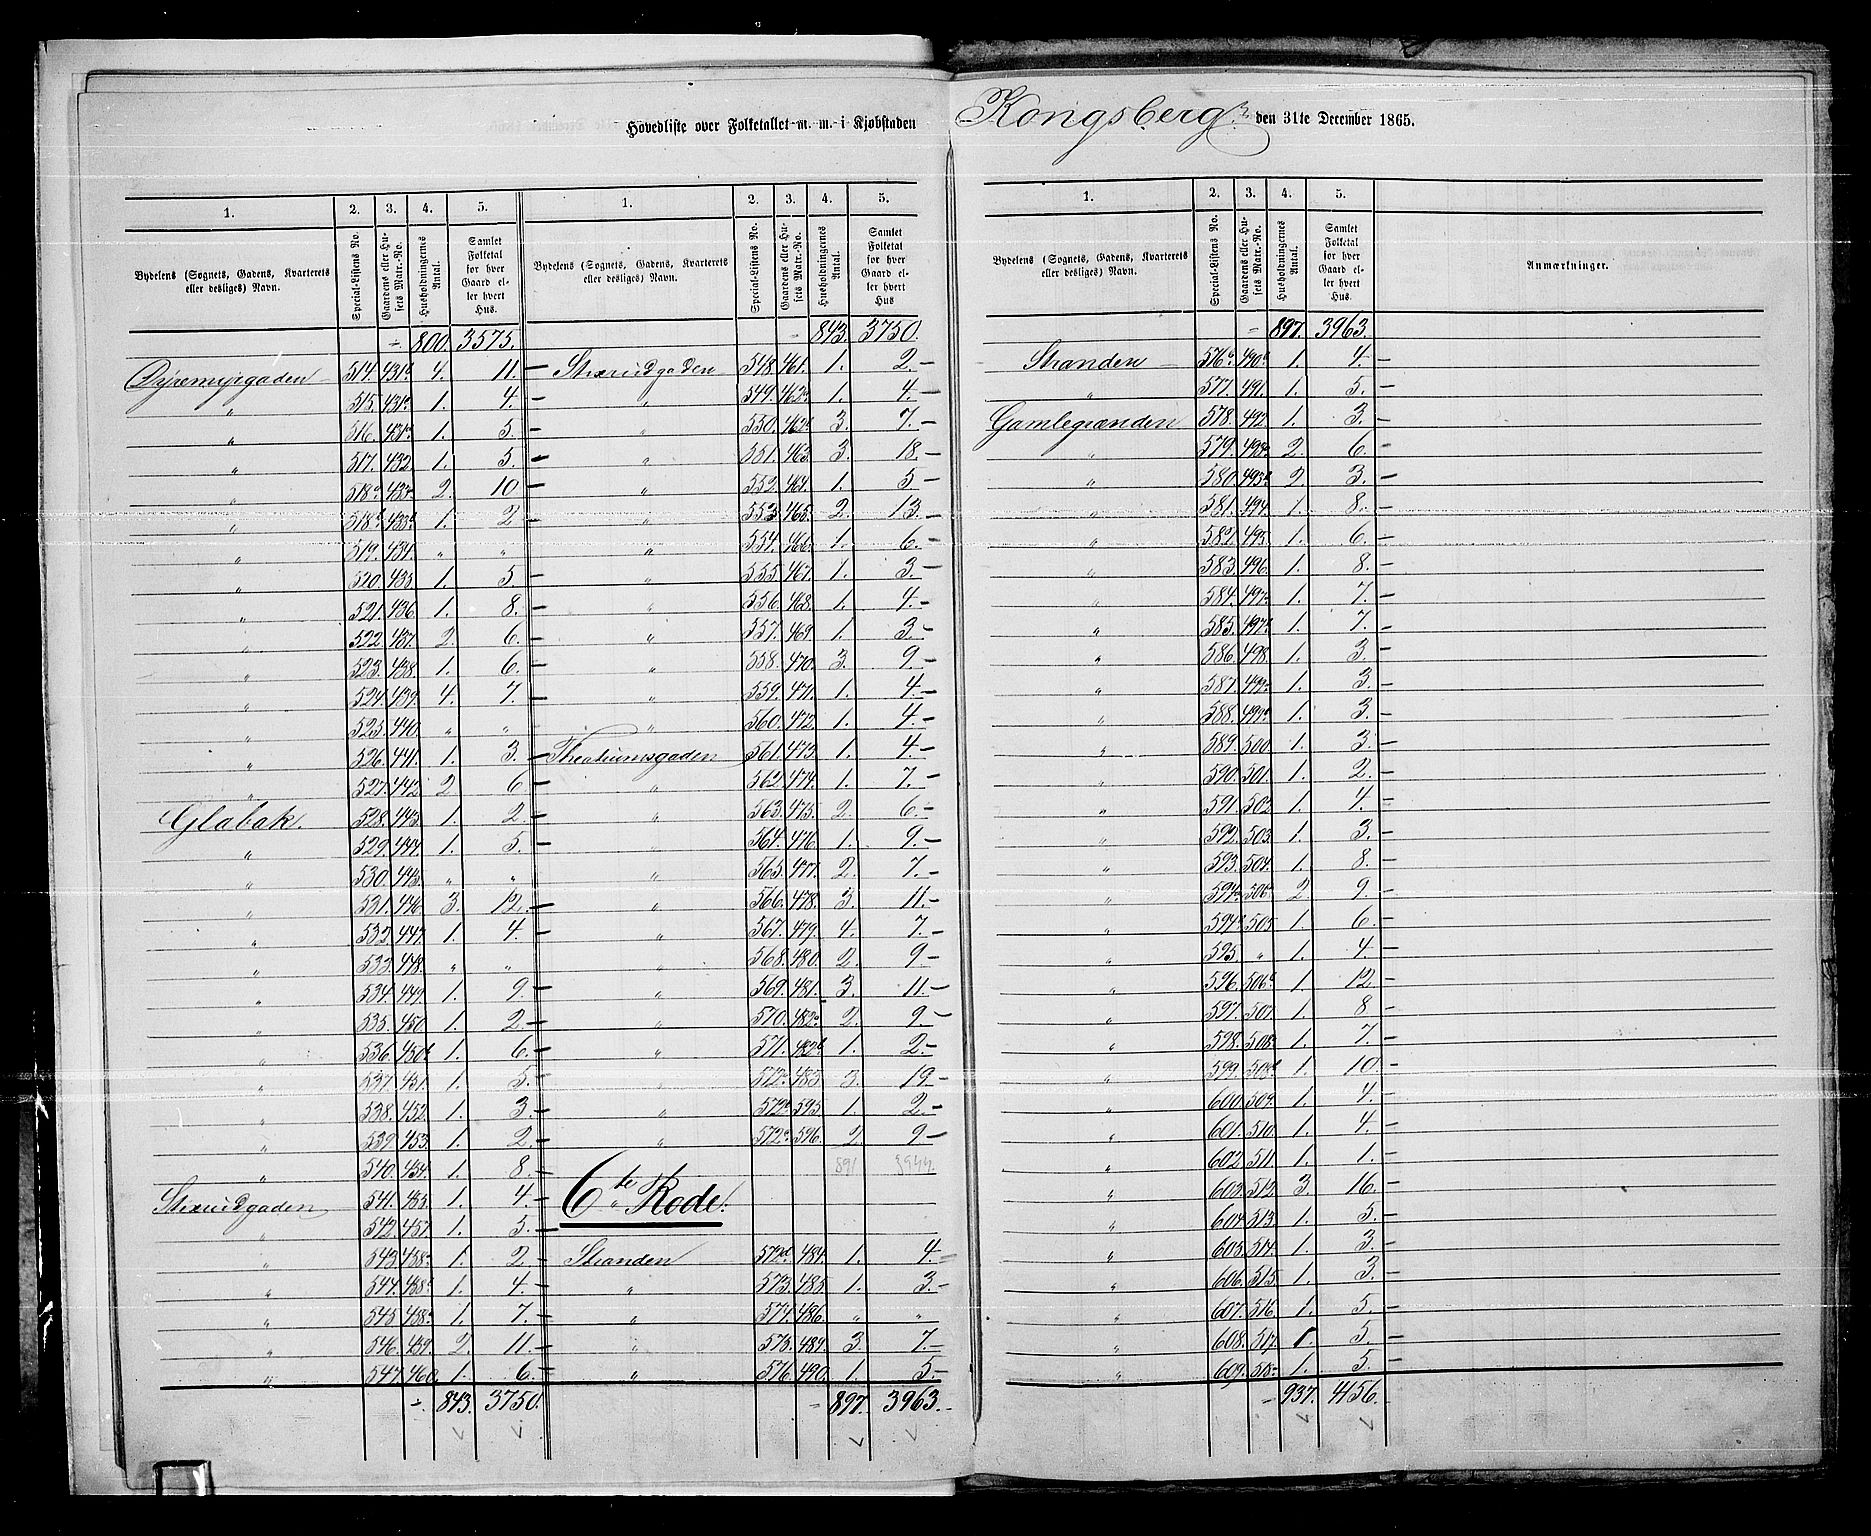 Hovedliste over Folketallet m. m. i Kjøbstaden Kongsberg, den 31te December 1865.
1. 2. 3. 4. 5. 1. 2. 3. 4. 5.
Bydelens (Sognets, Gadens, Kvarterets eller desliges) Navn. Special-Listens No. Gaardens eller Husets Matr.-No. Husholdningernes Antal. Samlet Folketal for hver Gaard eller hvert Hus. Bydelens (Sognets, Gadens, Kvarterets eller desliges) Navn. Special-Listens No. Gaardens eller Husets Matr.-No. Husholdningernes Antal. Samlet Folketal for hver Gaard eller hvert Hus.
800. 3575. 843. 3750.
Dyremyrgaden 514. 431 4. 11. Stxrudgaden 548. 461. 1. 2.
" 515. 431 1. 4. " 549. 462 1. 4.
" 516. 431 1. 5. " 550. 462 3. 7.
" 517. 432. 1. 5. " 551. 463. 3. 18.
" 518 433 2. 10 " 552. 464. 1. 5
" 518 433 1. 2 " 553. 465. 2. 13.
" 519. 434. " " " 554. 466. 1. 6.
" 520. 435. 1. 5. " 555. 467. 1. 3.
" 521. 436. 1. 8. " 556. 468. 1. 4.
" 522. 437. 2. 6. " 557. 469. 1. 3.
" 523. 438. 1. 6. " 558. 470. 3. 9.
" 524. 439. 4. 7. " 559. 471. 1. 4.
" 525. 440. " " " 560. 472. 1. 4.
" 526. 441. 1. 3. Theatrumsgaden 561. 473. 1. 4.
" 527. 442. 2 6 " 562. 474. 1. 7.
Glabak. 528. 443. 1. 2. " 563. 475. 2. 6.
" 529. 444. 1. 5. " 564. 476. 1. 9.
" 530. 445. " " " 565. 477. 2. 7.
" 531. 446. 3. 12. " 566. 478. 3. 11.
" 532. 447. 1. 4. " 567. 479. 4. 7.
" 533. 448. " " " 568. 480. 2. 9
" 534. 449. 1. 9. " 569. 481. 3. 11.
" 535. 450. 1. 2. " 570. 482 2. 9.
" 536. 450b 1. 6. " 571. 482b 1. 2
" 537. 451. 1. 5. " 572 483 3. 19.
" 538. 452. 1. 3. " 572b 595 1. 2
" 539. 453. 1. 2. " 572c 596. 2. 9
" 540. 454. 1. 8. 891 3944.
541. 455. 1. 4. 6te Rode.
" 542. 457. 1. 5.
" 543. 458 1. 2 Stranden 572d 484. 1. 4.
" 544. 458b 1. 4. " 573. 485. 1. 3.
" 545 458 1. 7. " 574. 486. " "
" 546. 459. 2. 11. " 575. 489. 3. 7.
" 547. 460. 1. 6. " 576 490. 1. 5
843. 3750. 897. 3963.
1. 2. 3. 4. 5.
Bydelens (Sognets, Gadens, Kvarterets eller desliges) Navn. Special-Listens No. Gaardens eller Husets Matr.-No. Husholdningernes Antal. Samlet Folketal for hver Gaard eller hvert Hus Anmærkninger.
897. 3963.
Stranden 576b 490b 1. 4.
" 577. 491. 1. 5.
Gamlegrænden 578. 492. 1. 3.
" 579. 493 2. 6.
" 580. 493b 2. 3.
" 581. 494. 1. 8.
" 582. 495. 1. 6.
" 583. 496. 1. 8.
" 584. 497 1. 7.
" 585. 497b 1. 7.
" 586. 498. 1. 3.
" 587. 499 1. 3.
" 588. 499b 1. 3.
" 589. 500. 1. 3.
" 590. 501. 1. 2.
" 591. 502 1. 4.
" 592. 503. 1. 3.
" 593. 504. 1. 8.
" 594 506 2. 9.
" 594b 505 1. 6.
" 595 " 1. 4.
" 596. 506b 1. 12.
" 597. 507. 1. 8
" 598. 508 1. 7.
" 599. 508b 1. 10.
" 600. 509. 1. 4.
" 601. 510. 1. 4.
" 602. 511. 1. 1.
" 603. 512. 3. 16.
" 604. 513. 1. 5.
" 605. 514. 1. 3.
" 606. 515. 1. 3.
" 607. 516. 1. 5.
" 608. 517. 1. 5.
" 609. 518. 1. 5.
937. 4156.